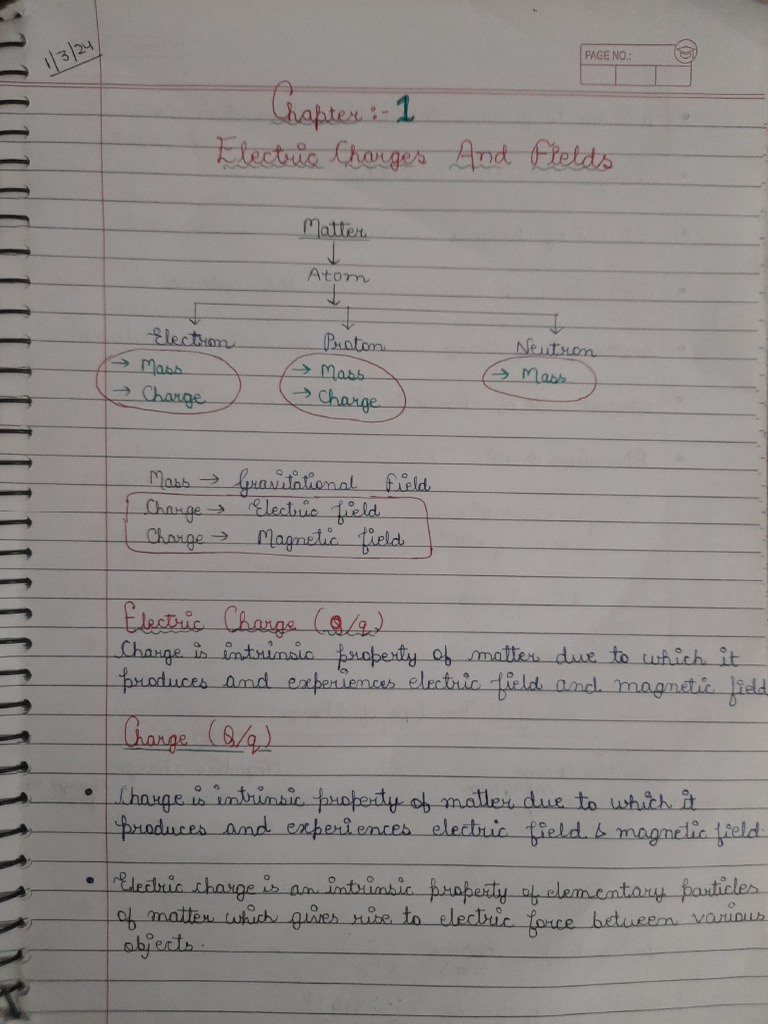 1/3/24
PAGE NO.:
Chapter :- 1
Electric Charges And Fields
Matter
↓
Atom
↓
Electron Proton Neutron
→ Mass → Mass → Mass
→ Charge → Charge
Mass → Gravitational Field
Charge → Electric field
Charge → Magnetic field
Electric Charge (Q/q)
Charge is intrinsic property of matter due to which it
produces and experiences electric field and magnetic field
Charge (Q/q)
• Charge is intrinsic property of matter due to which it
produces and experiences electric field & magnetic field.
• Electric charge is an intrinsic property of elementary particles
of matter which gives rise to electric force between various
objects.